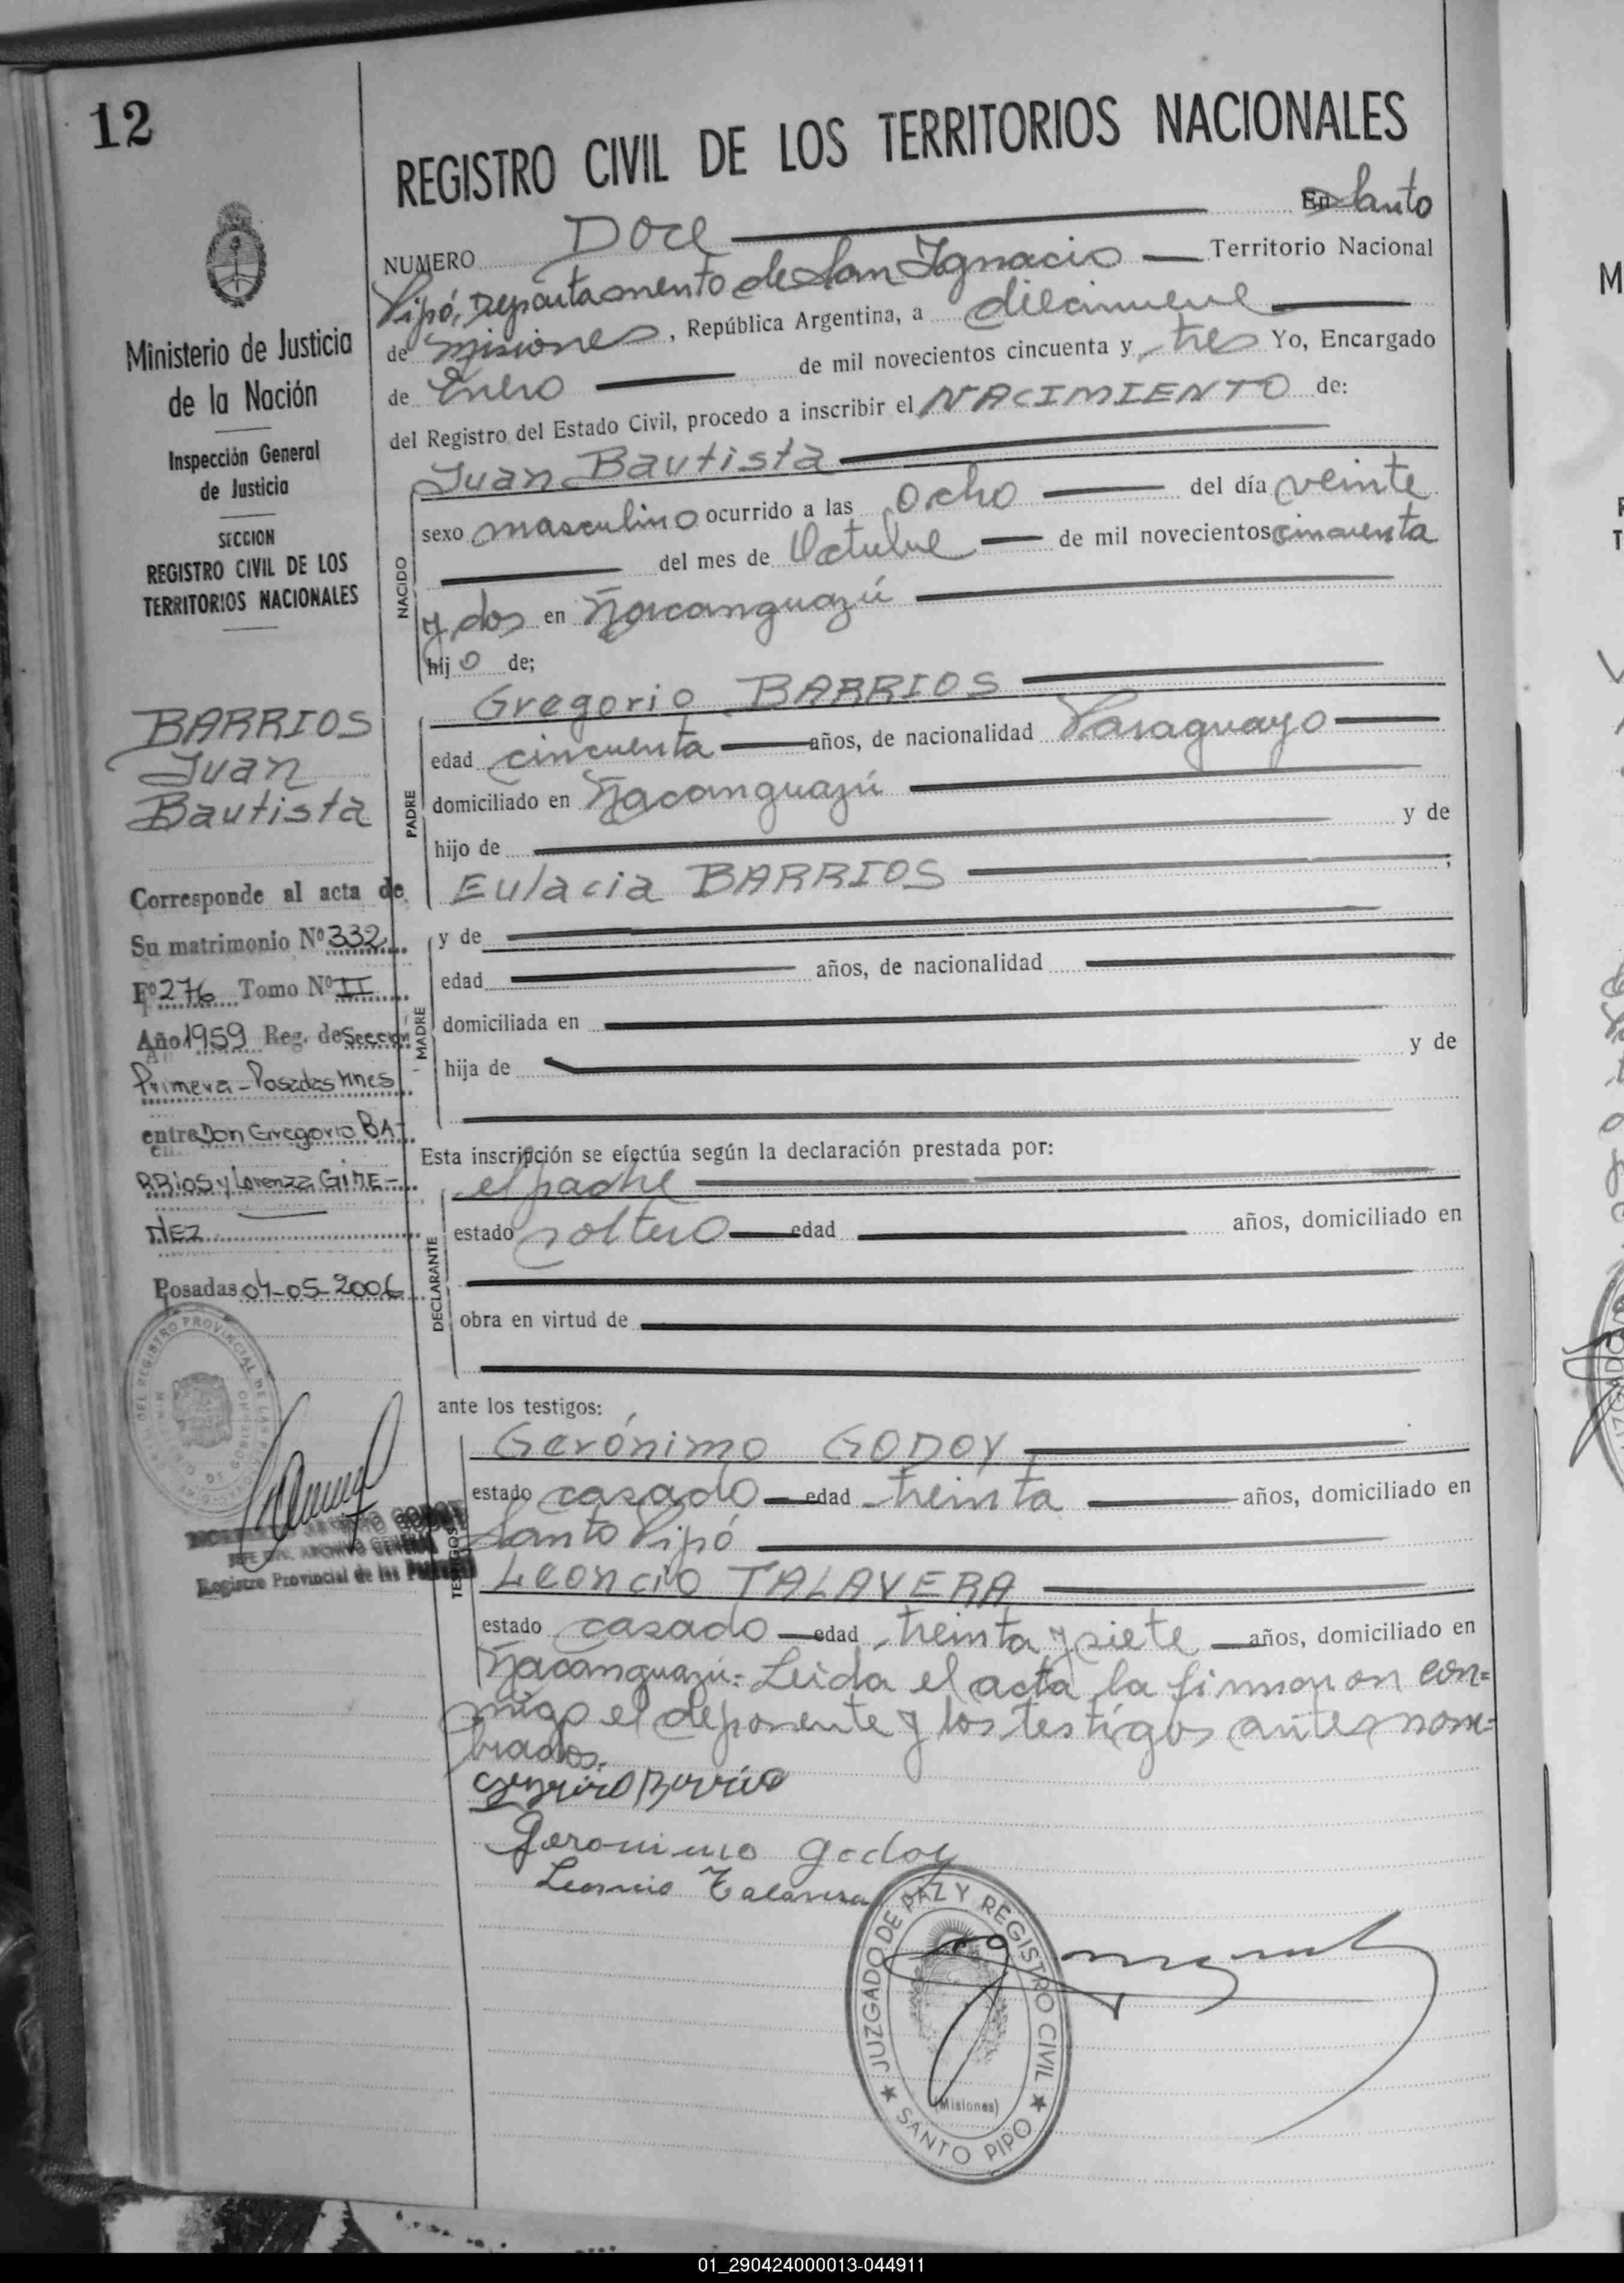 12
REGISTRO CIVIL DE LOS TERRITORIOS NACIONALES
NUMERO Doce En Santo
Pipó, Departamento de San Ignacio Territorio Nacional
de Misiones, República Argentina, a diecinueve
de Enero de mil novecientos cincuenta y tres Yo, Encargado
del Registro del Estado Civil, procedo a inscribir el NACIMIENTO de:
Juan Bautista
sexo masculino ocurrido a las ocho del día veinte
del mes de Octubre de mil novecientos cincuenta
y dos en Ñacanguazú
hijo de;
NACIDO
Gregorio BARRIOS
edad cincuenta años, de nacionalidad Paraguayo
domiciliado en Ñacanguazú
hijo de y de
Eulacia BARRIOS ;
PADRE
y de
edad años, de nacionalidad
domiciliada en
hija de y de
MADRE
Esta inscripción se efectúa según la declaración prestada por:
el padre
estado soltero edad años, domiciliado en
obra en virtud de
DECLARANTE
ante los testigos:
Gerónimo GODOY
estado casado edad treinta años, domiciliado en
Santo Pipó
Leoncio TALAVERA
estado casado edad treinta y siete años, domiciliado en
Ñacanguazú.- Leida el acta la firmaron con=
migo el deponente y los testigos antes nom=
brados.
TESTIGOS
Barrios
Geronimo Godoy
Leoncio Talavera
JUZGADO DE PAZ Y REGISTRO CIVIL
(Misiones)
SANTO PIPO
Ministerio de Justicia
de la Nación
Inspección General
de Justicia
SECCION
REGISTRO CIVIL DE LOS
TERRITORIOS NACIONALES
BARRIOS
Juan
Bautista
Corresponde al acta de
Su matrimonio Nº 332
Fº 276 Tomo Nº II
Año 1959 Reg. de Sección
Primera - Posadas Mnes
entre Don Gregorio BA-
RRIOS y Lorenza GIME-
NEZ
Posadas 04-05-2006
DEL REGISTRO PROVINCIAL DE LAS
GODOY
JEFE DIV. ARCHIVO GENERAL
Registro Provincial de las
01_290424000013-044911